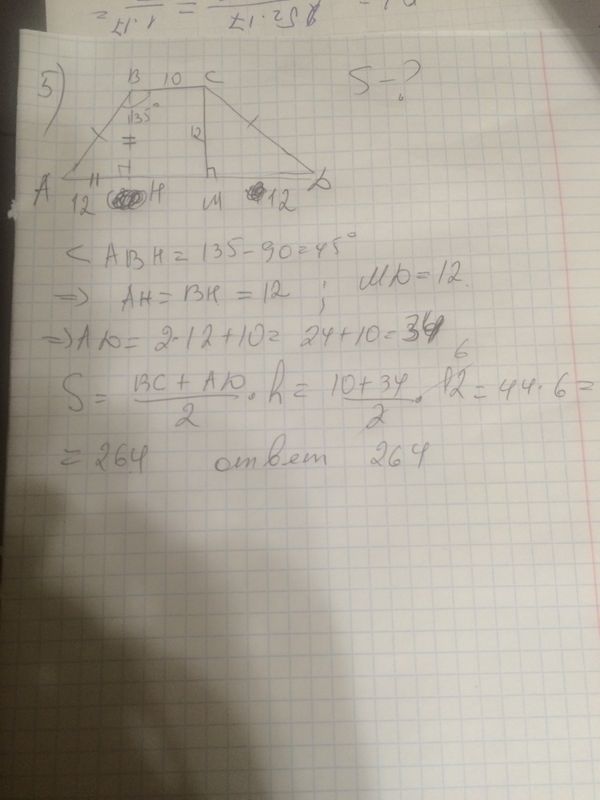 5)
B 10 C
S - ?
135°
12
A 12 H M 12 D
< ABH = 135 - 90 = 45°
=> AH = BH = 12 ; MD = 12.
=> AD = 2·12 + 10 = 24 + 10 = 34
6
S = BC + AD / 2 · h = 10 + 34 / 2 · 12 = 44 · 6 =
= 264 ответ 264